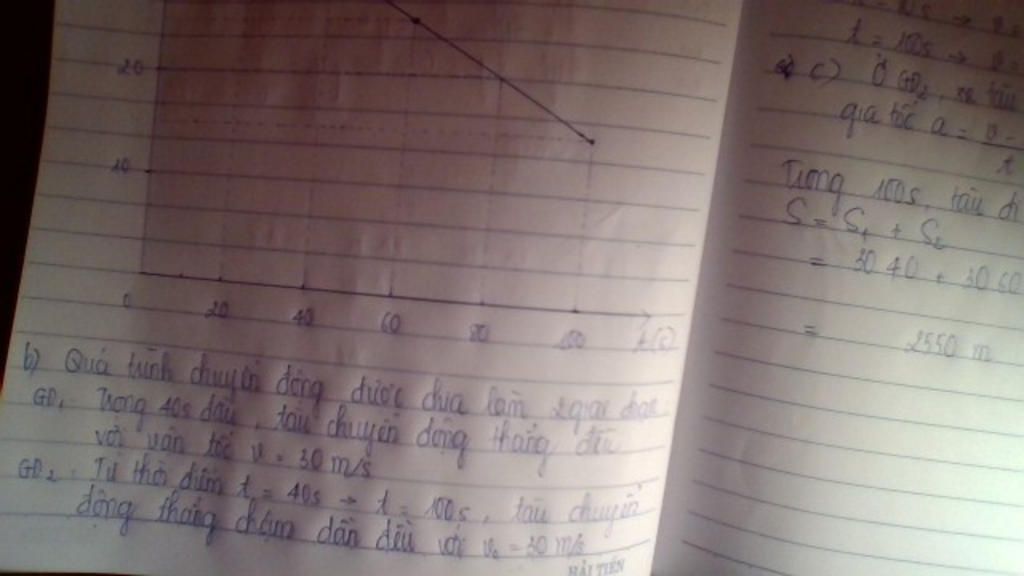 20
10
0 20 40 60 80 100 t(s)
b) Quá trình chuyển động được chia làm 2 giai đoạn
GĐ1: Trong 40s đầu, tàu chuyển động thẳng đều
với vận tốc v = 30 m/s
GĐ2: Từ thời điểm t = 40s → t = 100s, tàu chuyển
động thẳng chậm dần đều với v₀ = 30 m/s
HẢI TIẾN
t = 100s → v =
c) Ở GĐ2,
gia tốc a = v -
t
Trong 100s, tàu đi
S = S1 + S2
= 30.40 + 30.60
= 2550 m